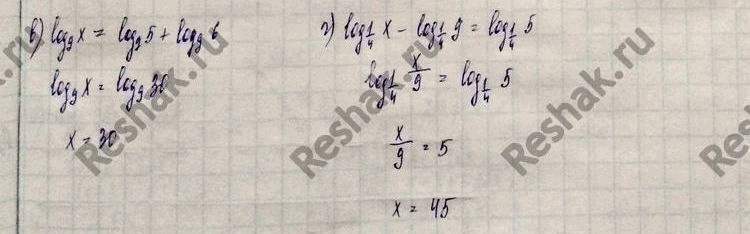 в) log₉ x = log₉ 5 + log₉ 6
log₉ x = log₉ 30
x = 30
г) log_{1/4} x - log_{1/4} 9 = log_{1/4} 5
log_{1/4} x/9 = log_{1/4} 5
x/9 = 5
x = 45
Reshak.ru
Reshak.ru
Reshak.ru